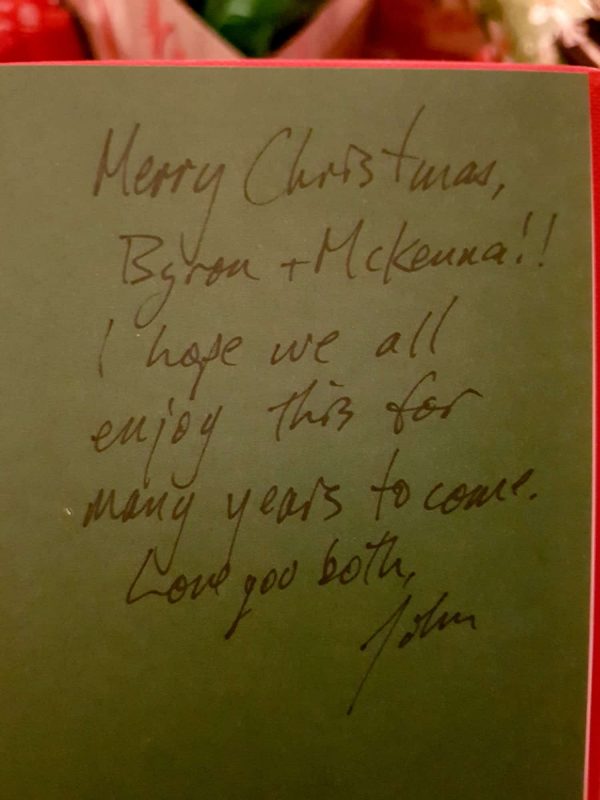 Merry Christmas,
Byron + McKenna!!
I hope we all
enjoy this for
many years to come.
Love you both,
John